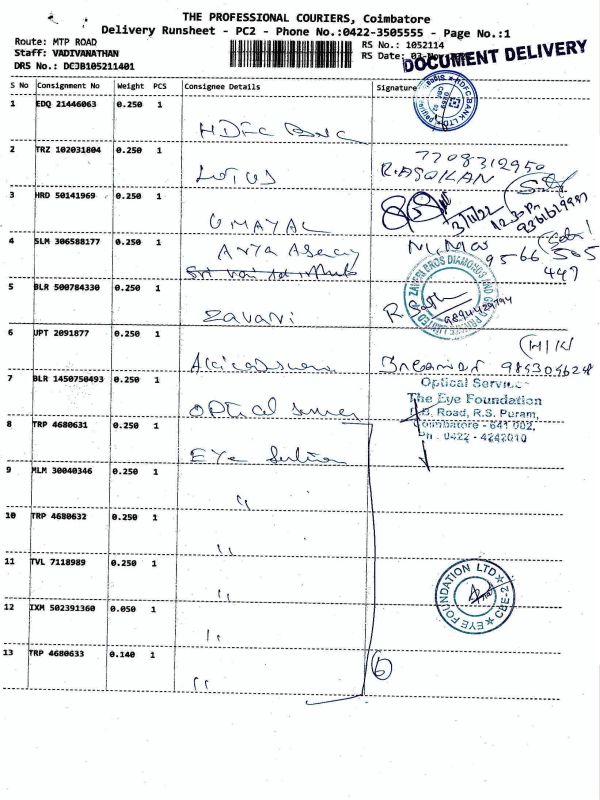 THE PROFESSIONAL COURIERS, Coimbatore
Delivery Runsheet - PC2 - Phone No.:0422-3505555 - Page No.:1
Route: MTP ROAD
Staff: VADIVANATHAN
DRS No.: DCJB105211401
RS No.: 1052114
RS Date: 03-Nov
DOCUMENT DELIVERY
S No Consignment No Weight PCS Consignee Details Signature
HDFC BANK LTD
1 EDQ 21446063 0.250 1
HDFC Banc
7708312950
2 TRZ 102031804 0.250 1
LOTUS R.ASOKAN
3 HRD 50141969 0.250 1
UMAYAL 3/11/22 12.30 Pm
4 SLM 306588177 0.250 1
Arya 9566 505
447
5 BLR 500784330 0.250 1
ZAVERI BROS DIAMONDS AND GOLD PRIVATE LIMITED
Zavari 9894429794
6 UPT 2091877 0.250 1
(H/W)
7 BLR 1450750493 0.250 1
Optical
Optical Service
The Eye Foundation
D.B. Road, R.S. Puram,
Coimbatore - 641 002.
Ph : 0422 - 4242010
8 TRP 4680631 0.250 1
EYe
9 MLM 30040346 0.250 1
"
10 TRP 4680632 0.250 1
"
11 TVL 7118989 0.250 1
"
EYE FOUNDATION LTD CBE-2
12 IXM 502391360 0.050 1
"
13 TRP 4680633 0.140 1
" 6